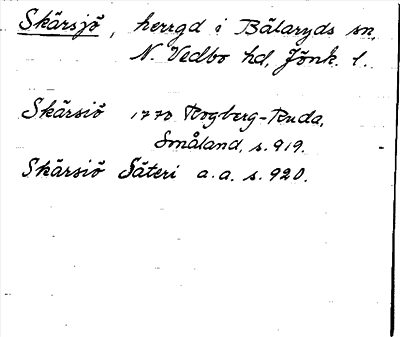 Skärsjö, herrgd i Bälaryds sn,
N. Vedbo hd, Jönk. l.
Skärsiö 1770 Rogberg-Ruda,
Småland, s. 919.
Skärsiö Säteri a.a. s. 920.